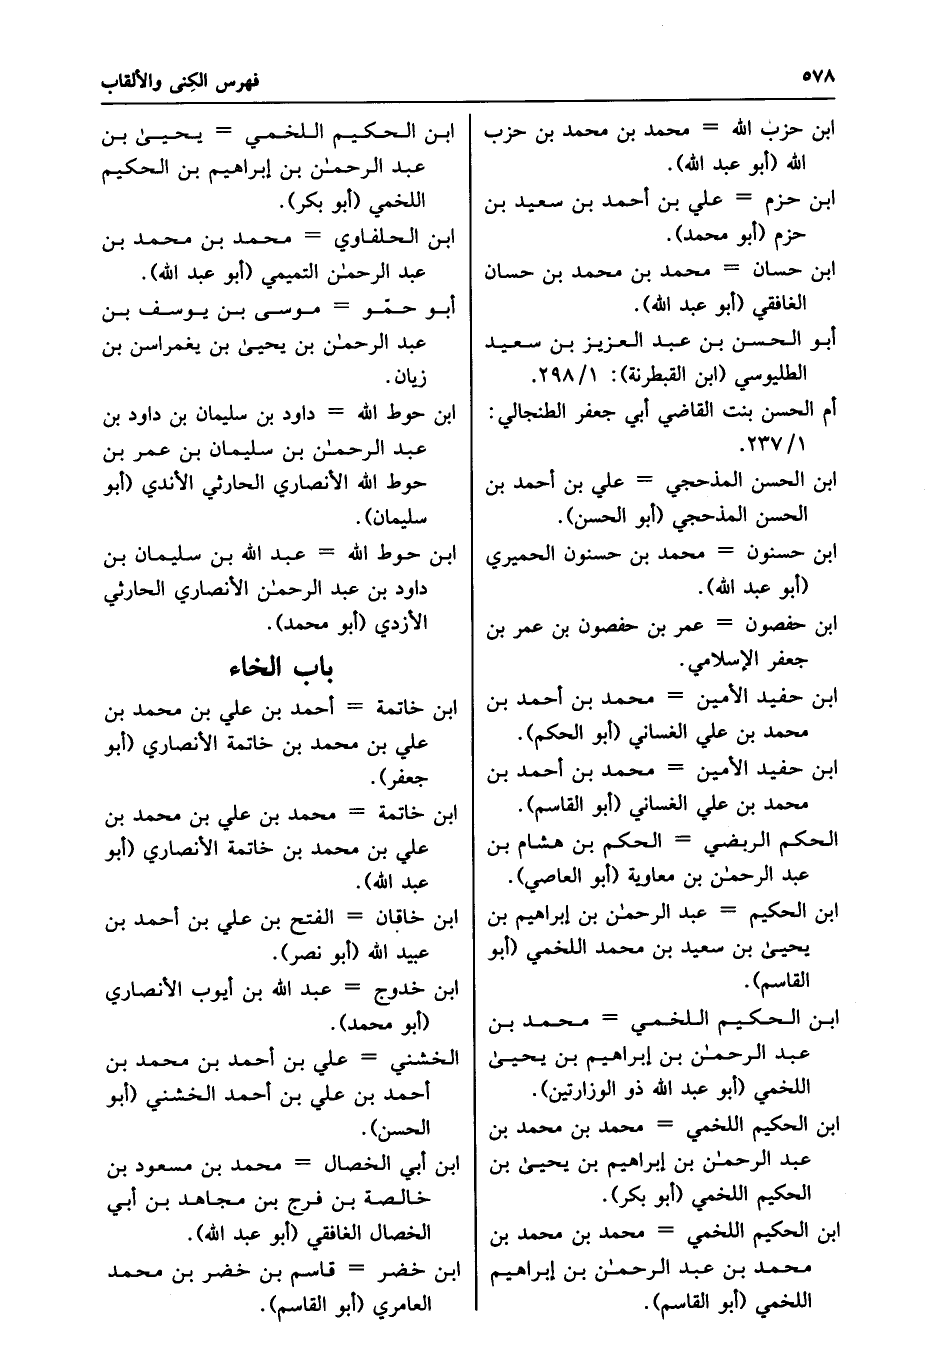 ٥٧٨
فهرس الكِنى والألقاب
ابن حزب الله = محمد بن محمد بن حزب
الله (أبو عبد الله).
ابن حزم = علي بن أحمد بن سعيد بن
حزم (أبو محمد).
ابن حسان = محمد بن محمد بن حسان
الغافقي (أبو عبد الله).
أبو الحسن بن عبد العزيز بن سعيد
الطليوسي (ابن القبطرنة): ٢٩٨/١.
أم الحسن بنت القاضي أبي جعفر الطنجالي:
٢٣٧/١.
ابن الحسن المذحجي = علي بن أحمد بن
الحسن المذحجي (أبو الحسن).
ابن حسنون = محمد بن حسنون الحميري
(أبو عبد الله).
ابن حفصون = عمر بن حفصون بن عمر بن
جعفر الإسلامي.
ابن حفيد الأمين = محمد بن أحمد بن
محمد بن علي الغساني (أبو الحكم).
ابن حفيد الأمين = محمد بن أحمد بن
محمد بن علي الغساني (أبو القاسم).
الحكم الربضي = الحكم بن هشام بن
عبد الرحمٰن بن معاوية (أبو العاصي).
ابن الحكيم = عبد الرحمٰن بن إبراهيم بن
يحيىٰ بن سعيد بن محمد اللخمي (أبو
القاسم).
ابن الحكيم اللخمي = محمد بن
عبد الرحمٰن بن إبراهيم بن يحيىٰ
اللخمي (أبو عبد الله ذو الوزارتين).
ابن الحكيم اللخمي = محمد بن محمد بن
عبد الرحمٰن بن إبراهيم بن يحيىٰ بن
الحكيم اللخمي (أبو بكر).
ابن الحكيم اللخمي = محمد بن محمد بن
محمد بن عبد الرحمٰن بن إبراهيم
اللخمي (أبو القاسم).
ابن الحكيم اللخمي = يحيىٰ بن
عبد الرحمٰن بن إبراهيم بن الحكيم
اللخمي (أبو بكر).
ابن الحلفاوي = محمد بن محمد بن
عبد الرحمٰن التميمي (أبو عبد الله).
أبو حمّو = موسى بن يوسف بن
عبد الرحمٰن بن يحيىٰ بن يغمراسن بن
زيان.
ابن حوط الله = داود بن سليمان بن داود بن
عبد الرحمٰن بن سليمان بن عمر بن
حوط الله الأنصاري الحارثي الأندي (أبو
سليمان).
ابن حوط الله = عبد الله بن سليمان بن
داود بن عبد الرحمٰن الأنصاري الحارثي
الأزدي (أبو محمد).
باب الخاء
ابن خاتمة = أحمد بن علي بن محمد بن
علي بن محمد بن خاتمة الأنصاري (أبو
جعفر).
ابن خاتمة = محمد بن علي بن محمد بن
علي بن محمد بن خاتمة الأنصاري (أبو
عبد الله).
ابن خاقان = الفتح بن علي بن أحمد بن
عبيد الله (أبو نصر).
ابن خدوج = عبد الله بن أيوب الأنصاري
(أبو محمد).
الخشني = علي بن أحمد بن محمد بن
أحمد بن علي بن أحمد الخشني (أبو
الحسن).
ابن أبي الخصال = محمد بن مسعود بن
خالصة بن فرج بن مجاهد بن أبي
الخصال الغافقي (أبو عبد الله).
ابن خضر = قاسم بن خضر بن محمد
العامري (أبو القاسم).